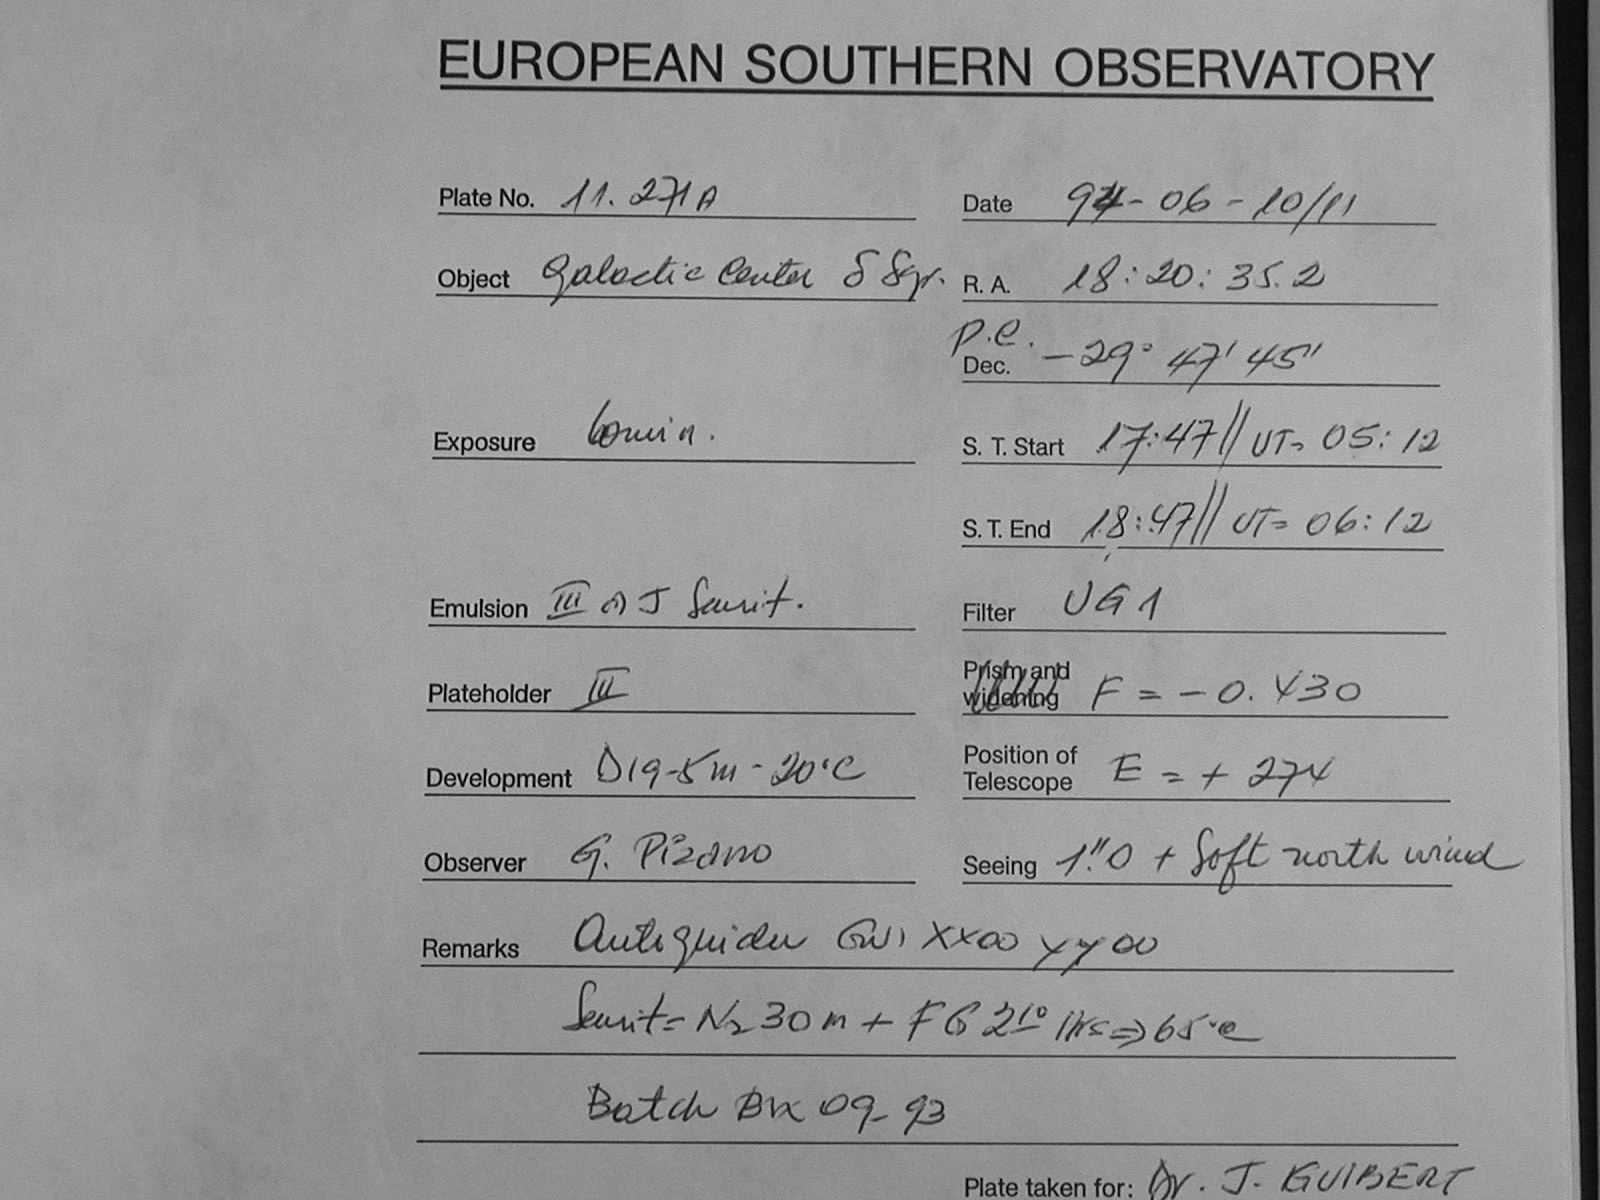 EUROPEAN SOUTHERN OBSERVATORY
Plate No. 11.271A Date 94-06-10/11
Object Galactic Center δ Sgr. R. A. 18:20:35.2
P.e.
Dec. -29° 47' 45"
Exposure 60min. S. T. Start 17:47// UT= 05:12
S. T. End 18:47// UT= 06:12
Emulsion III a J Sensit. Filter UG1
Plateholder III Prism and widening F = -0.430
Development D19-5m-20°C Position of Telescope E = + 274
Observer G. Pizarro Seeing 1."0 + Soft north wind
Remarks Autoguider XX00 YY00
Sensit= N2 30m + FG 2 Hrs => 65°C
Batch 09-93
Plate taken for: Dr. J. GUIBERT